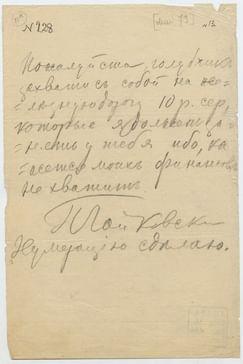 № 128
13
Пожалуйста, голубчикъ
захватись собой на же-
лезную дорогу 10 р. сер,
которые я долженъ за-
нять у тебя ибо, ка-
жется моихъ финансовъ
не хватитъ.
П Чайковски
Нумерацію сдѣлаю.